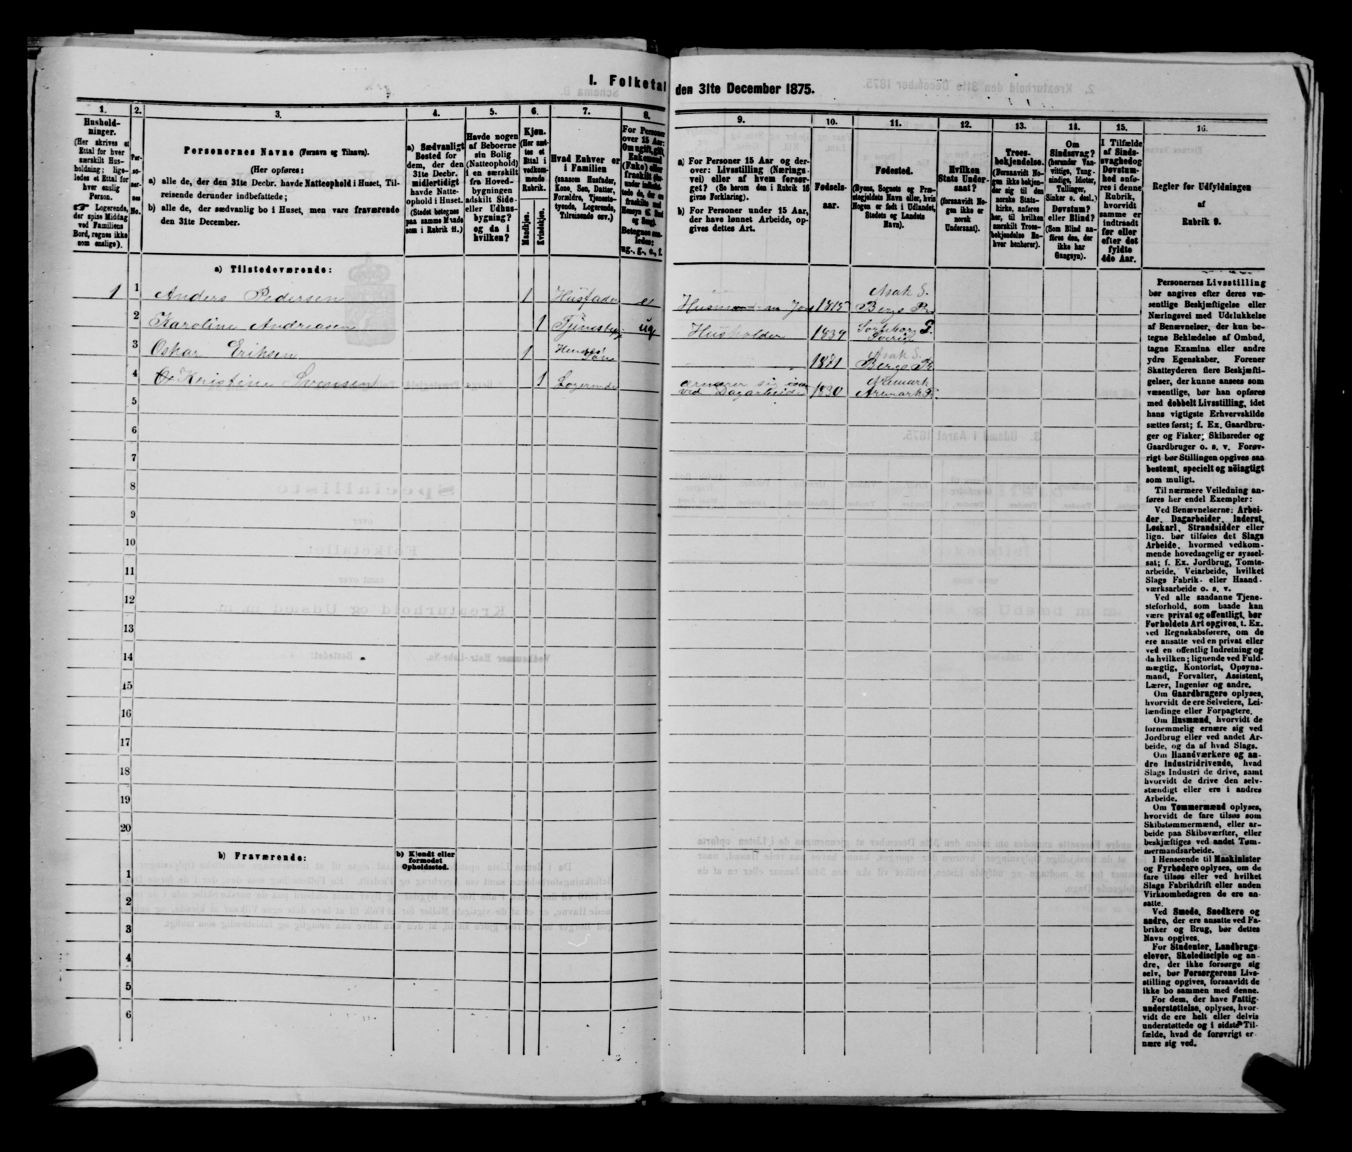 I. Folketal
den 31te December 1875.
1.
Hushold-
ninger.
(Her skrives et
Ettal for hver
særskilt Hus-
holdning; lige-
ledes et Ettal for
hver enslig
Person.
☞ Logerende,
der spise Middag
ved Familiens
Bord, regnes ikke
som enslige).
2.
Per-
so-
ner-
nes
No.
3.
Personernes Navne (Fornavn og Tilnavn).
(Her opføres:
a) alle de, der den 31te Decbr. havde Natteophold i Huset, Til-
reisende derunder indbefattede;
b) alle de, der sædvanlig bo i Huset, men vare fraværende
den 31te December.
4.
a) Sædvanligt
Bosted for
dem, der den
31te Decbr.
midlertidigt
havde Natte-
ophold i Huset.
(Stedet betegnes
paa samme Maade
som i Rubrik 11.)
5.
Havde nogen
af Beboerne
sin Bolig
(Natteophold)
i en særskilt
fra Hoved-
bygningen
adskilt Side-
eller Udhus-
bygning?
og da i
hvilken?
6.
Kjøn.
(Her sæt-
tes et
Ettal i
vedkom-
mende
Rubrik.
Mandkjøn.
Kvindekjøn.
7.
Hvad Enhver er
i Familien
(saasom Husfader,
Kone, Søn, Datter,
Forældre, Tjeneste-
tyende, Logerende,
Tilreisende osv.)
8.
For Personer
over 15 Aar:
Om ugift, gift,
Enkemand
(Enke) eller
fraskilt
Betegnes saa-
ledes:
ug., g., e., f.
9.
a) For Personer 15 Aar og der-
over: Livsstilling (Nærings-
vei) eller af hvem forsør-
get? (Se herom den i Rubrik 16
givne Forklaring).
b) For Personer under 15 Aar,
der have lønnet Arbeide, op-
gives dettes Art.
10.
Fødsels-
aar.
11.
Fødested.
(Byens, Sognets og Præ-
stegjeldets Navn eller, hvis
Nogen er født i Udlandet,
Stedets og Landets
Navn).
12.
Hvilken
Stats Under-
saat?
(forsaavidt No-
gen ikke er
norsk
Undersaat).
13.
Troes-
bekjendelse.
(Forsaavidt No-
gen ikke bekjen-
der sig til den
norske Stats-
kirke, anføres
her, til hvilken
særskilt Troes-
bekjendelse Be-
hver henhører).
14.
Om
Sindssvag?
(herunder Van-
vittige, Tung-
sindige, Idioter,
Tullinger,
Sinker o. desl.)
Døvstum?
eller Blind?
(Som Blind an-
føres den, der
ikke har
Gangsyn).
15.
I Tilfælde
af Sinds-
svaghed og
Døvstum-
hed anfø-
res i denne
Rubrik,
hvorvidt
samme er
indtraadt
før eller
efter det
fyldte
4de Aar.
16.
Regler for Udfyldningen
af
Rubrik 9.
a) Tilstedeværende:
1 1 Anders Pedersen 1 Husfader e Husmand 1815 Asak S. Bergs Pr
2 Karoline Andreasen 1 Tjenestep. ug Husholder 1839
3 Oskar Eriksen 1 Søn 1871 Asak S. Bergs Pr.
4 Kristine Svensen 1 Logerende ernærer sig ved Dagarbeide 1830 Aremark Aremark Pr.
5
6
7
8
9
10
11
12
13
14
15
16
17
18
19
20
b) Fraværende:
b) Kjendt eller
formodet
Opholdssted.
1
2
3
4
5
6
Personernes Livsstilling
bør angives efter deres væ-
sentlige Beskjæftigelse eller
Næringsvei med Udelukkelse
af Benævnelser, der kun be-
tegne Beklædelse af Ombud,
tagne Examina eller andre
ydre Egenskaber. Forener
Skatteyderen flere Beskjæfti-
gelser, der kunne ansees som
væsentlige, bør han opføres
med dobbelt Livsstilling, idet
hans vigtigste Erhvervskilde
sættes først; f. Ex. Gaardbru-
ger og Fisker; Skibsreder og
Gaardbruger o. s. v. Forøv-
rigt bør Stillingen opgives saa
bestemt, specielt og nöiagtigt
som muligt.
Til nærmere Veiledning an-
føres her endel Exempler:
Ved Benævnelserne: Arbei-
der, Dagarbeider, Inderst,
Løskarl, Strandsidder eller
lign. bør tilføies det Slags
Arbeide, hvormed vedkom-
mende hovedsagelig er syssel-
sat; f. Ex. Jordbrug, Tomte-
arbeide, Veiarbeide, hvilket
Slags Fabrik- eller Haand-
værksarbeide o. s. v.
Ved alle saadanne Tjene-
steforhold, som baade kan
være privat og offentligt, bør
Forholdets Art opgives, t. Ex.
ved Regnskabsførere, om de
ere ansatte ved en privat eller
ved en offentlig Indretning og
da hvilken; lignende ved Fuld-
mægtig, Kontorist, Opsyns-
mand, Forvalter, Assistent,
Lærer, Ingeniør og andre.
Om Gaardbrugere oplyses,
hvorvidt de ere Selveiere, Lei-
lændinge eller Forpagtere.
Om Husmænd, hvorvidt de
fornemmelig ernære sig ved
Jordbrug eller ved andet Ar-
beide, og da af hvad Slags.
Om Haandværkere og an-
dre Industridrivende, hvad
Slags Industri de drive, samt
hvorvidt de drive den selv-
stændigt eller ere i andres
Arbeide.
Om Tømmermænd oplyses,
hvorvidt de fare tilsøs som
Skibstømmermænd, eller ar-
beide paa Skibsværfter, eller
beskjæftiges ved andet Tøm-
mermandsarbeide.
I Henseende til Maskinister
og Fyrbødere oplyses, om de
fare tilsøs eller ved hvilket
Slags Fabrikdrift eller anden
Virksomhedsgren de ere an-
satte.
Ved Smede, Snedkere og
andre, der ere ansatte ved Fa-
briker og Brug, bør dettes
Navn opgives.
For Studenter, Landbrugs-
elever, Skoledisciple og an-
dre, der ikke forsørge sig
selv, bør Forsørgerens Livs-
stilling opgives, forsaavidt de
ikke bo sammen med denne.
For dem, der have Fattig-
understøttelse, oplyses, hvor-
vidt de ere helt eller delvis
understøttede og i sidste Til-
fælde, hvad de forøvrigt er-
nære sig ved.